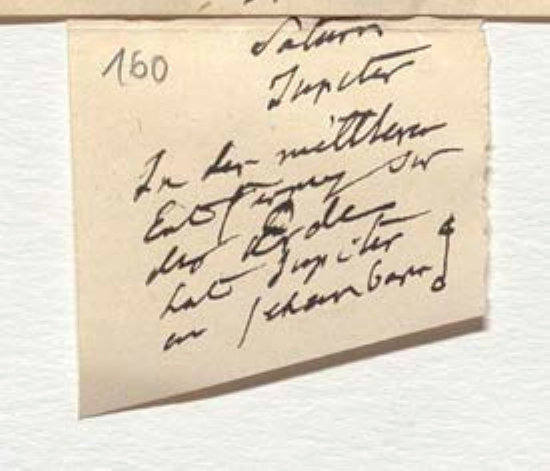 160
Saturn
Jupiter
In der mittleren
Entfernung
der Erde
hat Jupiter
scheinbaren